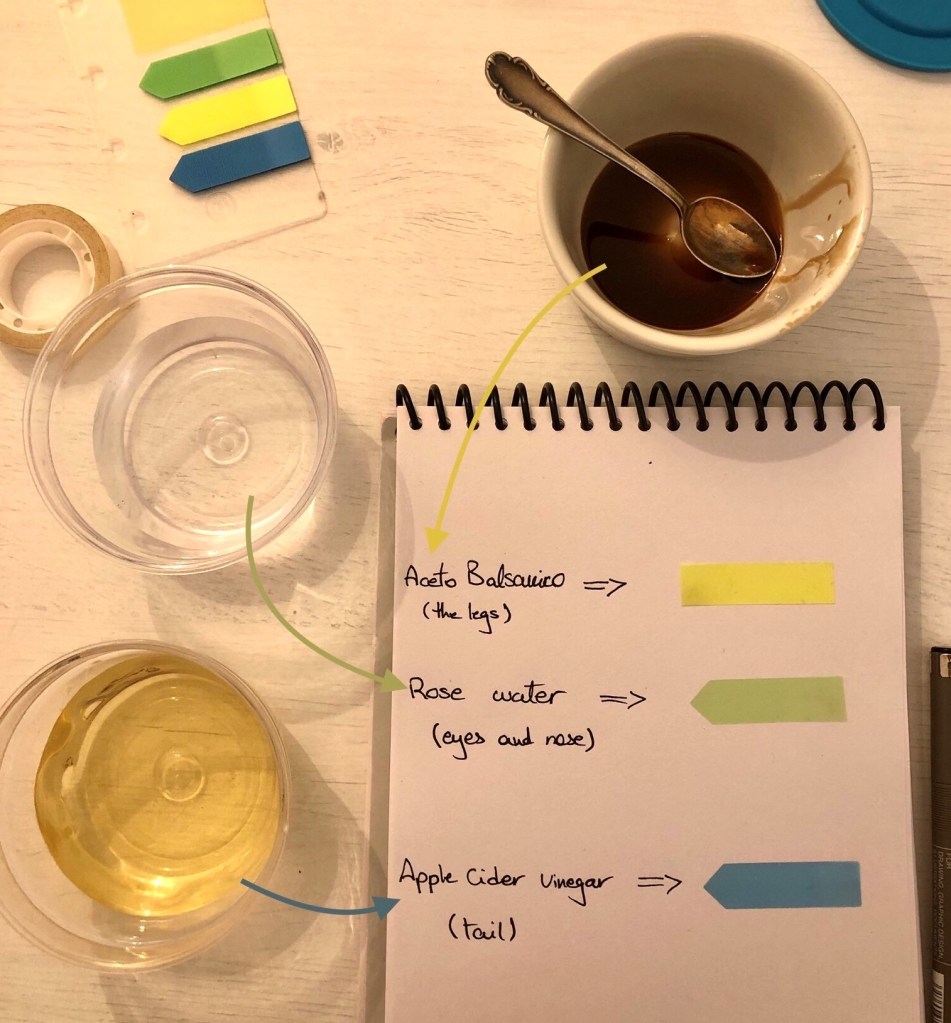 Aceto Balsamico =>
(the legs)
Rose water =>
(eyes and nose)
Apple Cider vinegar =>
(tail)